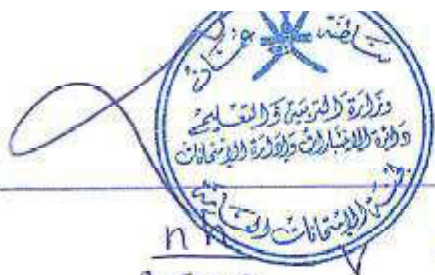 سلطنة عمان
وزارة التربية والتعليم
دائرة الاختبارات وإدارة الامتحانات
لجنة الامتحانات العامة
n n